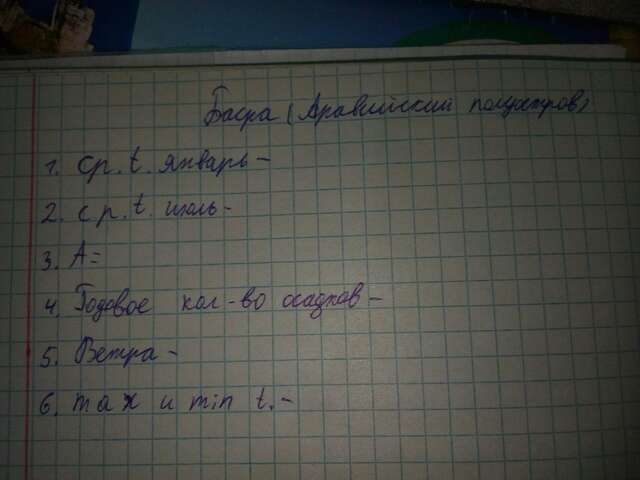 Басра (Аравийский полуостров)
1. ср. t. январь -
2. ср. t. июль -
3. A =
4. Годовое кол-во осадков -
5. Ветра -
6. max и min t. -